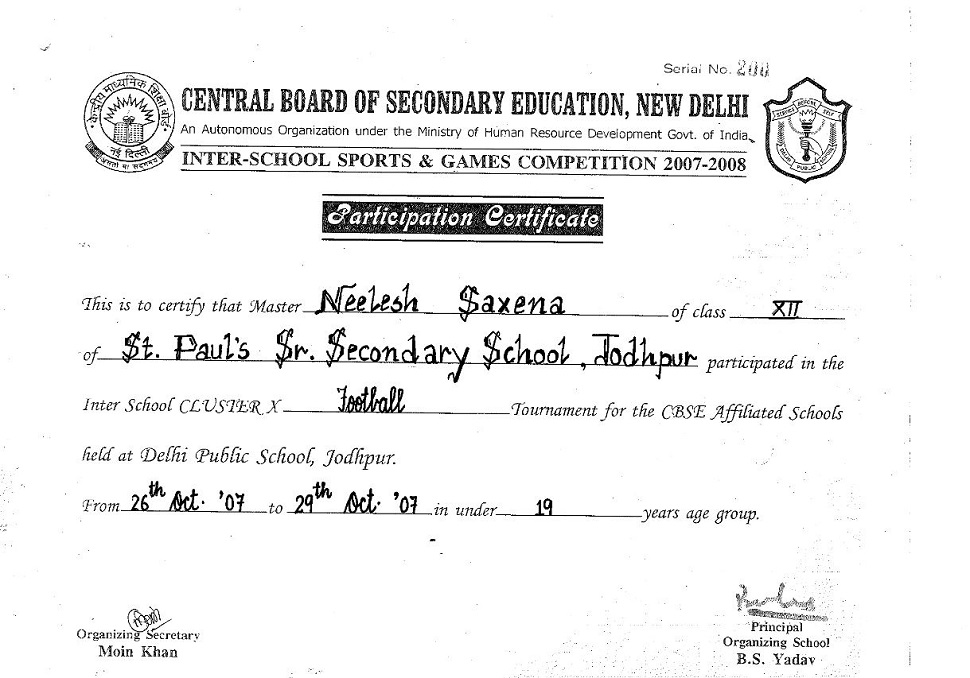 Serial No. 200
केन्द्रीय माध्यमिक शिक्षा बोर्ड
नई दिल्ली
असतो मा सद्गमय
CENTRAL BOARD OF SECONDARY EDUCATION, NEW DELHI
An Autonomous Organization under the Ministry of Human Resource Development Govt. of India
INTER-SCHOOL SPORTS & GAMES COMPETITION 2007-2008
SERVICE BEFORE SELF
DELHI PUBLIC SCHOOL
Participation Certificate
This is to certify that Master Neelesh Saxena of class XII
of St. Paul's Sr. Secondary School, Jodhpur participated in the
Inter School CLUSTER X Football Tournament for the CBSE Affiliated Schools
held at Delhi Public School, Jodhpur.
From 26th Oct. '07 to 29th Oct. '07 in under 19 years age group.
Organizing Secretary
Moin Khan
Principal
Organizing School
B.S. Yadav